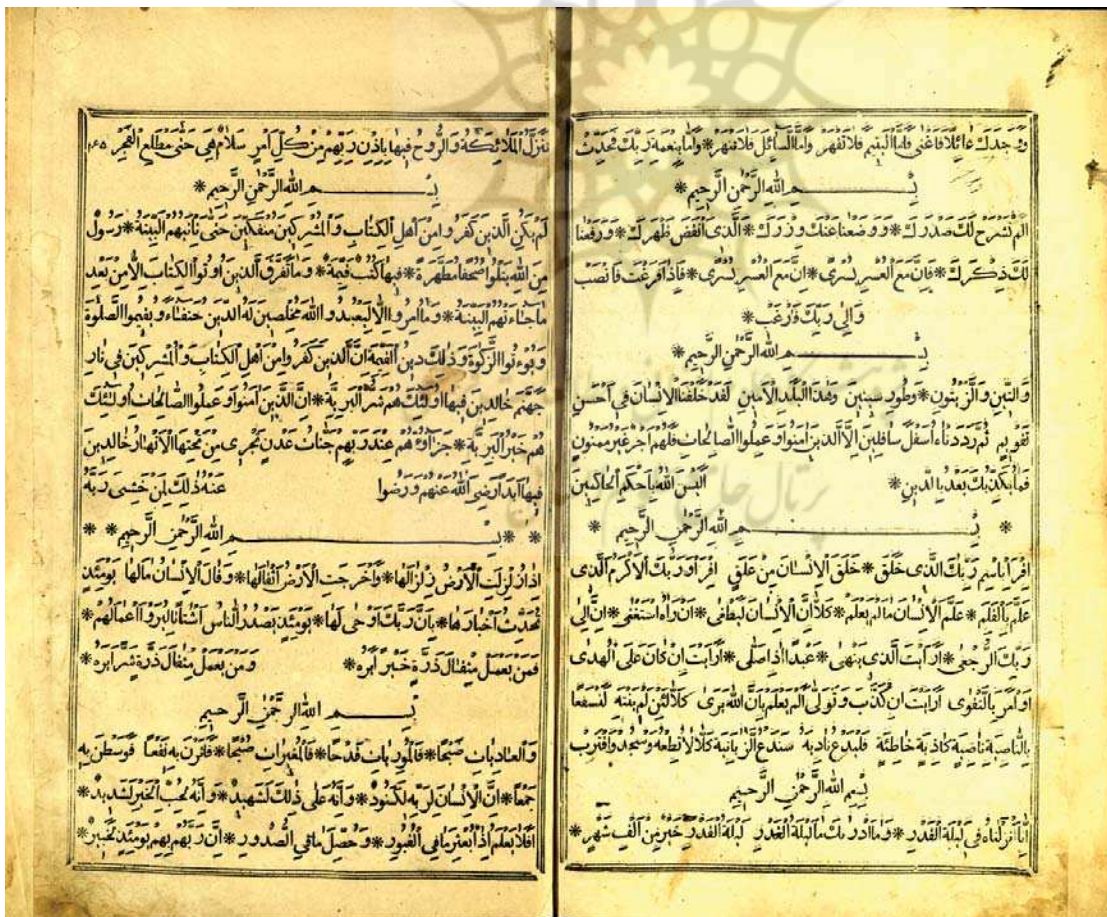 وَوَجَدَكَ عَائِلًا فَأَغْنَى فَأَمَّا الْيَتِيمَ فَلَا تَقْهَرْ وَأَمَّا السَّائِلَ فَلَا تَنْهَرْ * وَأَمَّا بِنِعْمَةِ رَبِّكَ فَحَدِّثْ
بِسْمِ اللهِ الرَّحْمٰنِ الرَّحِيمِ *
اَلَمْ نَشْرَحْ لَكَ صَدْرَكَ * وَوَضَعْنَا عَنْكَ وِزْرَكَ * الَّذِى اَنْقَضَ ظَهْرَكَ * وَرَفَعْنَا
لَكَ ذِكْرَكَ * فَاِنَّ مَعَ الْعُسْرِ يُسْرًى * اِنَّ مَعَ الْعُسْرِ يُسْرًى * فَاِذَا فَرَغْتَ فَانْصَبْ
وَاِلٰى رَبِّكَ فَارْغَبْ *
بِسْمِ اللهِ الرَّحْمٰنِ الرَّحِيمِ *
وَالتِّينِ وَالزَّيْتُونِ * وَطُورِ سِينِينَ وَهٰذَا الْبَلَدِ الْاَمِينِ لَقَدْ خَلَقْنَا الْاِنْسَانَ فِى اَحْسَنِ
تَقْوِيمٍ ثُمَّ رَدَدْنَاهُ اَسْفَلَ سَافِلِينَ اِلَّا الَّذِينَ اٰمَنُوا وَعَمِلُوا الصَّالِحَاتِ فَلَهُمْ اَجْرٌ غَيْرُ مَمْنُونٍ
فَمَا يُكَذِّبُكَ بَعْدُ بِالدِّينِ * اَلَيْسَ اللهُ بِاَحْكَمِ الْحَاكِمِينَ
* بِسْمِ اللهِ الرَّحْمٰنِ الرَّحِيمِ *
اِقْرَأْ بِاسْمِ رَبِّكَ الَّذِى خَلَقَ * خَلَقَ الْاِنْسَانَ مِنْ عَلَقٍ اِقْرَأْ وَرَبُّكَ الْاَكْرَمُ الَّذِى
عَلَّمَ بِالْقَلَمِ * عَلَّمَ الْاِنْسَانَ مَا لَمْ يَعْلَمْ * كَلَّا اِنَّ الْاِنْسَانَ لَيَطْغٰى * اَنْ رَاٰهُ اسْتَغْنٰى * اِنَّ اِلٰى
رَبِّكَ الرُّجْعٰى * اَرَاَيْتَ الَّذِى يَنْهٰى * عَبْدًا اِذَا صَلّٰى * اَرَاَيْتَ اِنْ كَانَ عَلَى الْهُدٰى
اَوْ اَمَرَ بِالتَّقْوٰى اَرَاَيْتَ اِنْ كَذَّبَ وَتَوَلّٰى اَلَمْ يَعْلَمْ بِاَنَّ اللهَ يَرٰى كَلَّا لَئِنْ لَمْ يَنْتَهِ لَنَسْفَعًا
بِالنَّاصِيَةِ نَاصِيَةٍ كَاذِبَةٍ خَاطِئَةٍ فَلْيَدْعُ نَادِيَهُ سَنَدْعُ الزَّبَانِيَةَ كَلَّا لَا تُطِعْهُ وَاسْجُدْ وَاقْتَرِبْ
بِسْمِ اللهِ الرَّحْمٰنِ الرَّحِيمِ
اِنَّا اَنْزَلْنَاهُ فِى لَيْلَةِ الْقَدْرِ * وَمَا اَدْرٰيكَ مَا لَيْلَةُ الْقَدْرِ لَيْلَةُ الْقَدْرِ خَيْرٌ مِنْ اَلْفِ شَهْرٍ *
تَنَزَّلُ الْمَلَائِكَةُ وَالرُّوحُ فِيهَا بِاِذْنِ رَبِّهِمْ مِنْ كُلِّ اَمْرٍ سَلَامٌ هِىَ حَتّٰى مَطْلَعِ الْفَجْرِ
بِسْمِ اللهِ الرَّحْمٰنِ الرَّحِيمِ *
لَمْ يَكُنِ الَّذِينَ كَفَرُوا مِنْ اَهْلِ الْكِتَابِ وَالْمُشْرِكِينَ مُنْفَكِّينَ حَتّٰى تَاْتِيَهُمُ الْبَيِّنَةُ * رَسُولٌ
مِنَ اللهِ يَتْلُوا صُحُفًا مُطَهَّرَةً * فِيهَا كُتُبٌ قَيِّمَةٌ * وَمَا تَفَرَّقَ الَّذِينَ اُوتُوا الْكِتَابَ اِلَّا مِنْ بَعْدِ
مَا جَاءَتْهُمُ الْبَيِّنَةُ * وَمَا اُمِرُوا اِلَّا لِيَعْبُدُوا اللهَ مُخْلِصِينَ لَهُ الدِّينَ حُنَفَاءَ وَيُقِيمُوا الصَّلٰوةَ
وَيُؤْتُوا الزَّكٰوةَ وَذٰلِكَ دِينُ الْقَيِّمَةِ اِنَّ الَّذِينَ كَفَرُوا مِنْ اَهْلِ الْكِتَابِ وَالْمُشْرِكِينَ فِى نَارِ
جَهَنَّمَ خَالِدِينَ فِيهَا اُولٰئِكَ هُمْ شَرُّ الْبَرِيَّةِ * اِنَّ الَّذِينَ اٰمَنُوا وَعَمِلُوا الصَّالِحَاتِ اُولٰئِكَ
هُمْ خَيْرُ الْبَرِيَّةِ * جَزَاؤُهُمْ عِنْدَ رَبِّهِمْ جَنَّاتُ عَدْنٍ تَجْرِى مِنْ تَحْتِهَا الْاَنْهَارُ خَالِدِينَ
فِيهَا اَبَدًا رَضِىَ اللهُ عَنْهُمْ وَرَضُوا عَنْهُ ذٰلِكَ لِمَنْ خَشِىَ رَبَّهُ
* * بِسْمِ اللهِ الرَّحْمٰنِ الرَّحِيمِ * *
اِذَا زُلْزِلَتِ الْاَرْضُ زِلْزَالَهَا * وَاَخْرَجَتِ الْاَرْضُ اَثْقَالَهَا * وَقَالَ الْاِنْسَانُ مَالَهَا يَوْمَئِذٍ
تُحَدِّثُ اَخْبَارَهَا * بِاَنَّ رَبَّكَ اَوْحٰى لَهَا * يَوْمَئِذٍ يَصْدُرُ النَّاسُ اَشْتَاتًا لِيُرَوْا اَعْمَالَهُمْ *
فَمَنْ يَعْمَلْ مِثْقَالَ ذَرَّةٍ خَيْرًا يَرَهُ * وَمَنْ يَعْمَلْ مِثْقَالَ ذَرَّةٍ شَرًّا يَرَهُ *
بِسْمِ اللهِ الرَّحْمٰنِ الرَّحِيمِ
وَالْعَادِيَاتِ ضَبْحًا * فَالْمُورِيَاتِ قَدْحًا * فَالْمُغِيرَاتِ صُبْحًا * فَاَثَرْنَ بِهِ نَقْعًا فَوَسَطْنَ بِهِ
جَمْعًا * اِنَّ الْاِنْسَانَ لِرَبِّهِ لَكَنُودٌ * وَاِنَّهُ عَلٰى ذٰلِكَ لَشَهِيدٌ * وَاِنَّهُ لِحُبِّ الْخَيْرِ لَشَدِيدٌ *
اَفَلَا يَعْلَمُ اِذَا بُعْثِرَ مَا فِى الْقُبُورِ * وَحُصِّلَ مَا فِى الصُّدُورِ * اِنَّ رَبَّهُمْ بِهِمْ يَوْمَئِذٍ لَخَبِيرٌ *